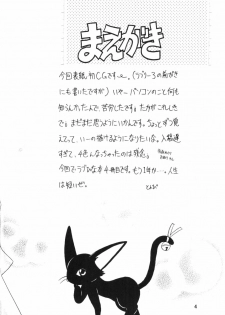 まえがき
今回表紙、初CGです〜。(ラブラー3のあがき
にも書いたですが) いやーパソコンのこと何も
知らんかったんで、苦労したです。たかがこれしき
で。まだまだ思うようにいかんです。ちょっとずつ覚
えてって、いーの描けるようになりたいなぁ。入稿遅
すぎて、4色んなっちゃったのは残念。
今回でラブひな本4冊目です。もう1年か…。人生
は短いぜ。
とんぷ
4